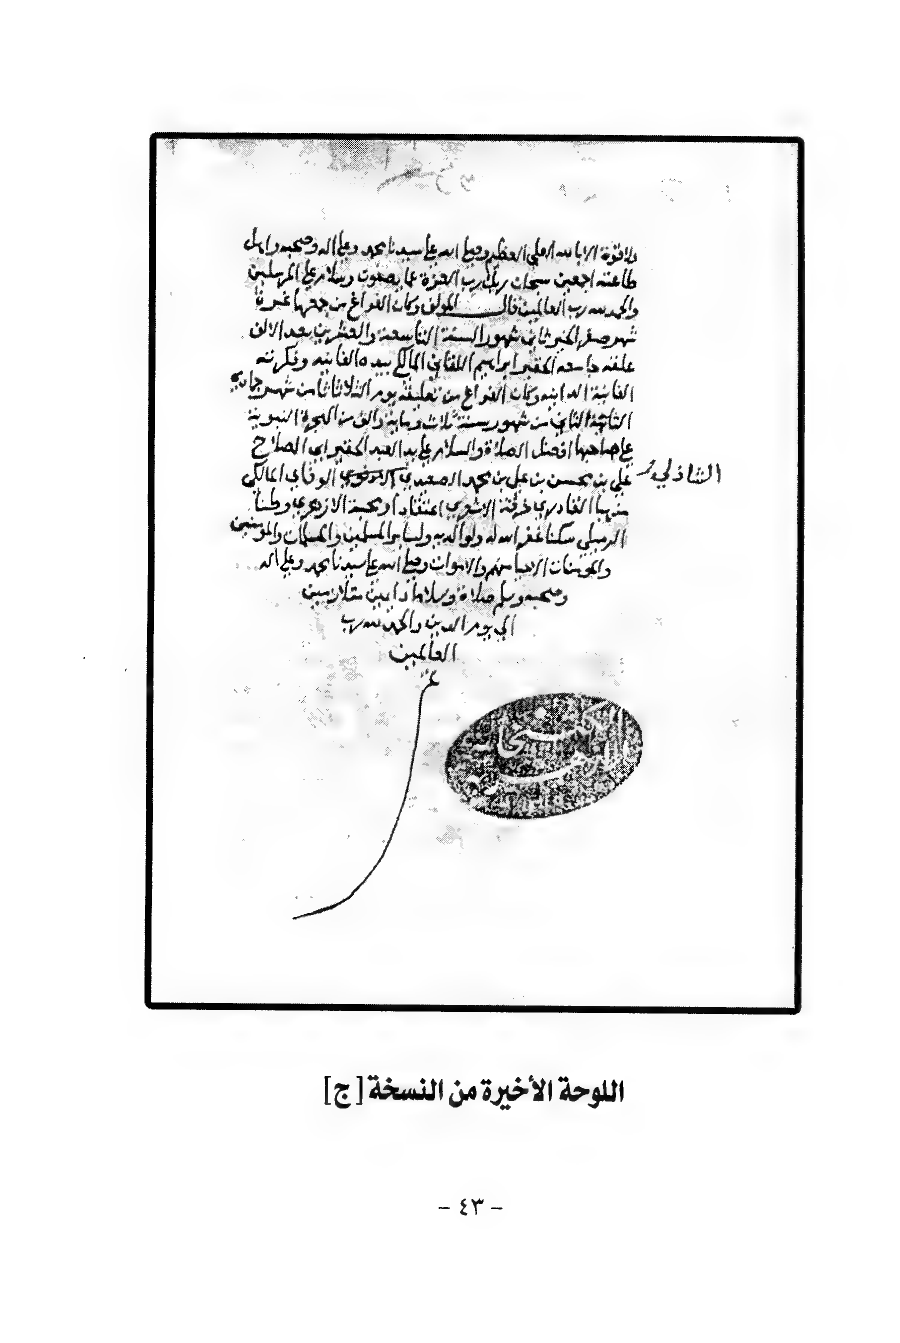 ولا قوة الا بالله العلي العظيم وصلى الله على سيدنا محمد وعلى اله وصحبه واهل
طاعته اجمعين سبحان ربك رب العزة عما يصفون وسلام على المرسلين
والحمد لله رب العالمين قال المولف وكان الفراغ من جمعها غرة
شهر صفر الخير ثاني شهور السنة التاسعة والعشرين بعد الالف
علقه جامعه الحقير ابراهيم اللقاني المالكي بيده الفانيه وفكرته
الفانية الدانيه وكان الفراغ من تعليقه يوم الثلاثا ثامن شهر جمادي
الثاني من شهور سنة ثلاث وماية والف من الهجرة النبوية
على صاحبها افضل الصلاة والسلام على يد العبد الحقير ابي الصلاح
علي بن محسن بن علي بن محمد الصعيدي الوفاي المالكي
الشاذلي
مذهبا القادري خرقة الاشعري اعتقادا الازهري وطنا
الرميلي سكنا غفر الله له ولوالديه ولساير المسلمين والمسلمات والمومنين
والمومنات الاحيا منهم والاموات وصلى الله على سيدنا محمد وعلى اله
وصحبه وسلم صلاة وسلاما دايمين متلازمين
الى يوم الدين والحمد لله رب
العالمين
الكتبخانة
اللوحة الأخيرة من النسخة [ج]
- ٤٣ -